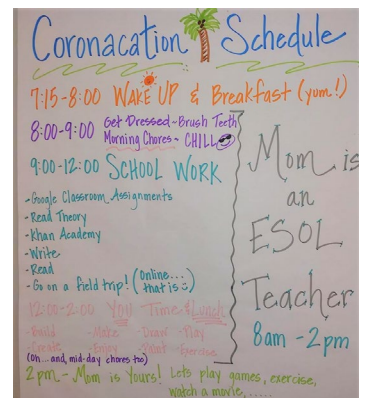 Coronacation Schedule
7:15-8:00 WAKE UP & Breakfast (yum!)
8:00-9:00 Get Dressed~Brush Teeth
Morning Chores~ CHILL
9:00-12:00 SCHOOL WORK
-Google Classroom Assignments
-Read Theory
-Khan Academy
-Write
-Read
-Go on a field trip! (Online... that is :)
12:00-2:00 You Time & Lunch
-Build -Make -Draw -Play
-Create -Enjoy -Paint -Exercise
(Oh...and, mid-day chores too)
Mom is
an
ESOL
Teacher
8am -2pm
2pm - Mom is Yours! Lets play games, exercise,
watch a movie, .....